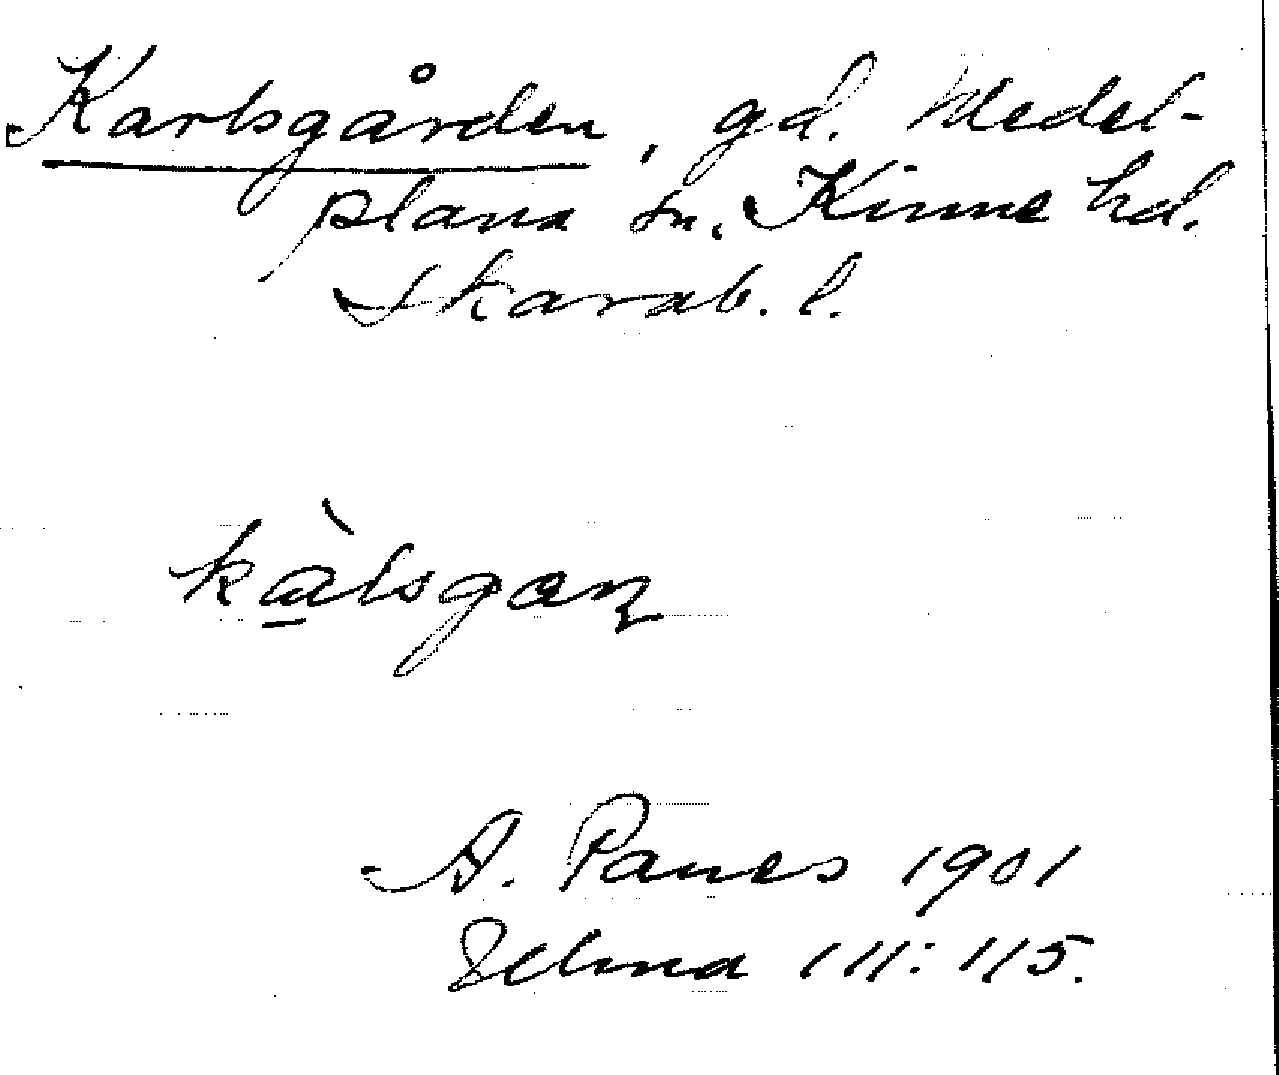 Karlsgården, gd. Medel-
plana sn. Kinne hd.
Skarab. l.
kàlsgaɳ
A. Panes 1901
111: 115.